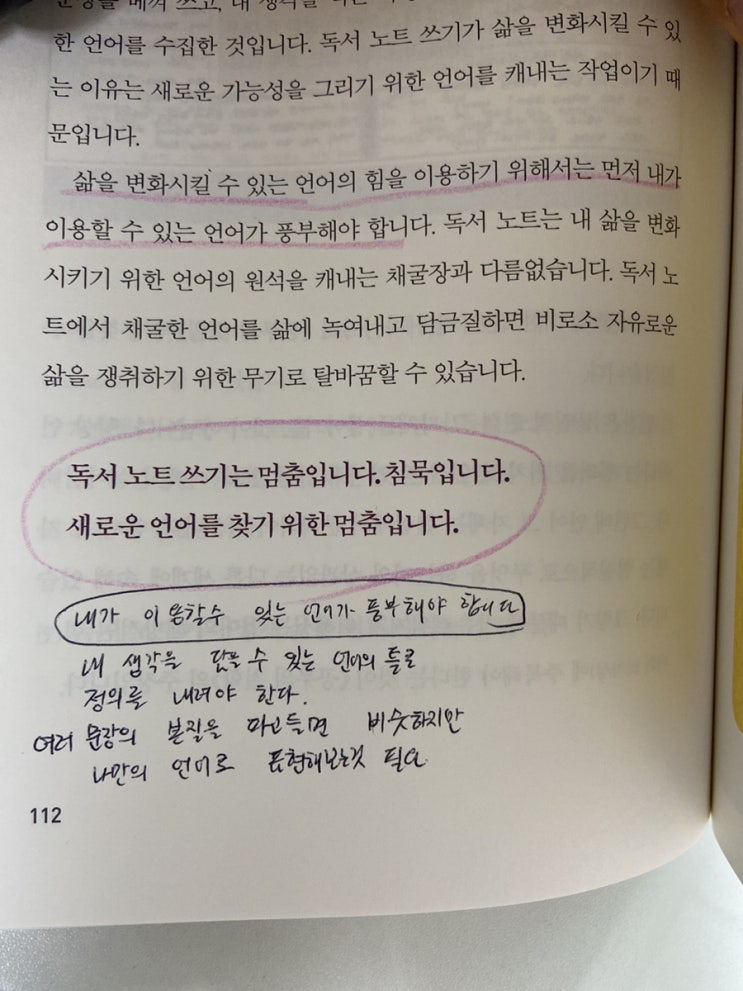 한 언어를 수집한 것입니다. 독서 노트 쓰기가 삶을 변화시킬 수 있
는 이유는 새로운 가능성을 그리기 위한 언어를 캐내는 작업이기 때
문입니다.
삶을 변화시킬 수 있는 언어의 힘을 이용하기 위해서는 먼저 내가
이용할 수 있는 언어가 풍부해야 합니다. 독서 노트는 내 삶을 변화
시키기 위한 언어의 원석을 캐내는 채굴장과 다름없습니다. 독서 노
트에서 채굴한 언어를 삶에 녹여내고 담금질하면 비로소 자유로운
삶을 쟁취하기 위한 무기로 탈바꿈할 수 있습니다.
독서 노트 쓰기는 멈춤입니다. 침묵입니다.
새로운 언어를 찾기 위한 멈춤입니다.
내가 이용할수 있는 언어가 풍부해야 합니다
내 생각을 담을 수 있는 언어의 틀로
정의를 내려야 한다.
여러 문장의 본질을 파고들면 비슷하지만
나만의 언어로 표현해보는것 필요
112